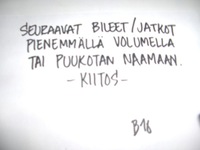 SEURAAVAT BILEET/JATKOT
PIENEMMÄLLÄ VOLUMELLA
TAI PUUKOTAN NAAMAAN.
-KIITOS-
B16